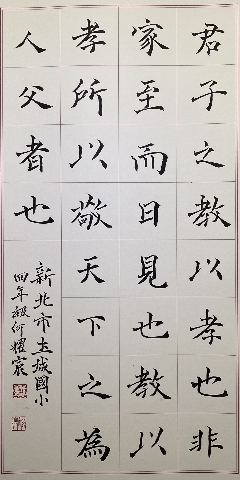 君子之教以孝也非
家至而日見也教以
孝所以敬天下之為
人父者也
新北市土城國小
四年級何耀宸